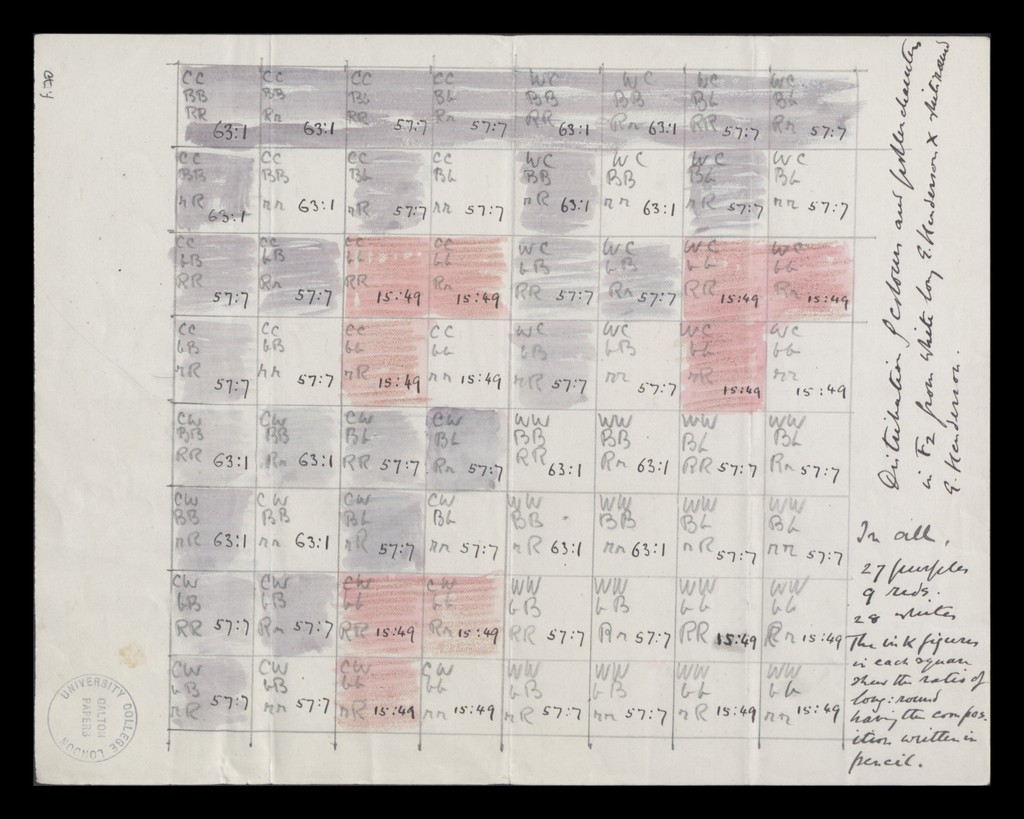 GE.y
CC CC CC CC WC WC WC WC
BB BB Bb Bb BB BB Bb Bb
RR 63:1 Rr 63:1 RR 57:7 Rr 57:7 RR 63:1 Rr 63:1 RR 57:7 Rr 57:7
CC CC CC CC WC WC WC WC
BB BB Bb Bb BB BB Bb Bb
rR 63:1 rr 63:1 rR 57:7 rr 57:7 rR 63:1 rr 63:1 rR 57:7 rr 57:7
CC CC CC CC WC WC WC WC
bB bB bb bb bB bB bb bb
RR 57:7 Rr 57:7 RR 15:49 Rr 15:49 RR 57:7 Rr 57:7 RR 15:49 Rr 15:49
CC CC CC CC WC WC WC WC
bB bB bb bb bB bB bb bb
rR 57:7 rr 57:7 rR 15:49 rr 15:49 rR 57:7 rr 57:7 rR 15:49 rr 15:49
CW CW CW CW WW WW WW WW
BB BB Bb Bb BB BB Bb Bb
RR 63:1 Rr 63:1 RR 57:7 Rr 57:7 RR 63:1 Rr 63:1 RR 57:7 Rr 57:7
CW CW CW CW WW WW WW WW
BB BB Bb Bb BB BB Bb Bb
rR 63:1 rr 63:1 rR 57:7 rr 57:7 rR 63:1 rr 63:1 rR 57:7 rr 57:7
CW CW CW CW WW WW WW WW
bB bB bb bb bB bB bb bb
RR 57:7 Rr 57:7 RR 15:49 Rr 15:49 RR 57:7 Rr 57:7 RR 15:49 Rr 15:49
CW CW CW CW WW WW WW WW
bB bB bb bb bB bB bb bb
rR 57:7 rr 57:7 rR 15:49 rr 15:49 rR 57:7 rr 57:7 rR 15:49 rr 15:49
Distribution of colours and pollen characters
in F2 from white long E. Henderson x white round
E. Henderson.
In all,
27 purples
9 reds.
28 whites
The ink figures
in each square
shew the ratios of
long:round
having the compos-
ition written in
pencil.
UNIVERSITY COLLEGE LONDON
GALTON
PAPERS